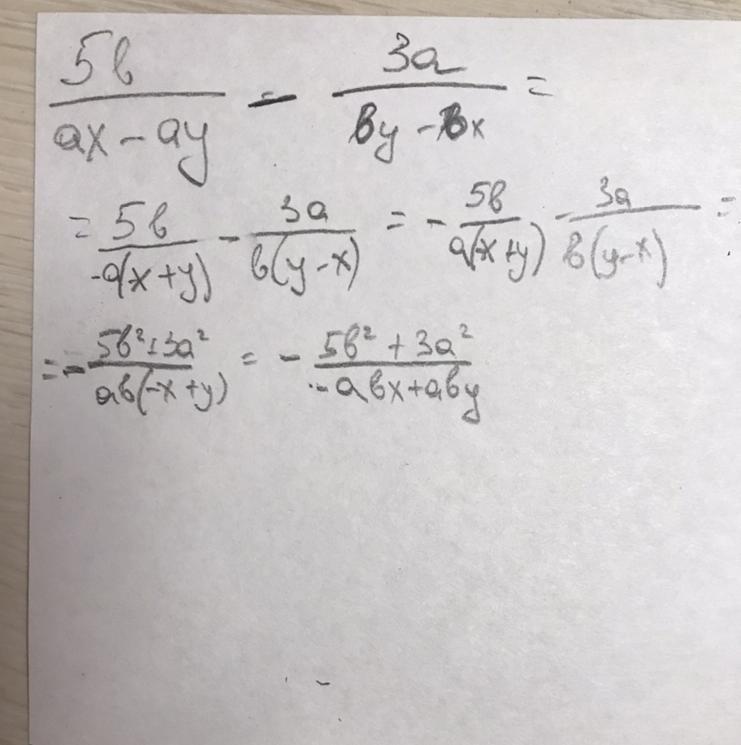 5b/(ax - ay) - 3a/(by - bx) =
= 5b/(-a(-x + y)) - 3a/(b(y - x)) = - 5b/(a(-x + y)) - 3a/(b(y - x)) =
= - (5b² + 3a²)/(ab(-x + y)) = - (5b² + 3a²)/(-abx + aby)